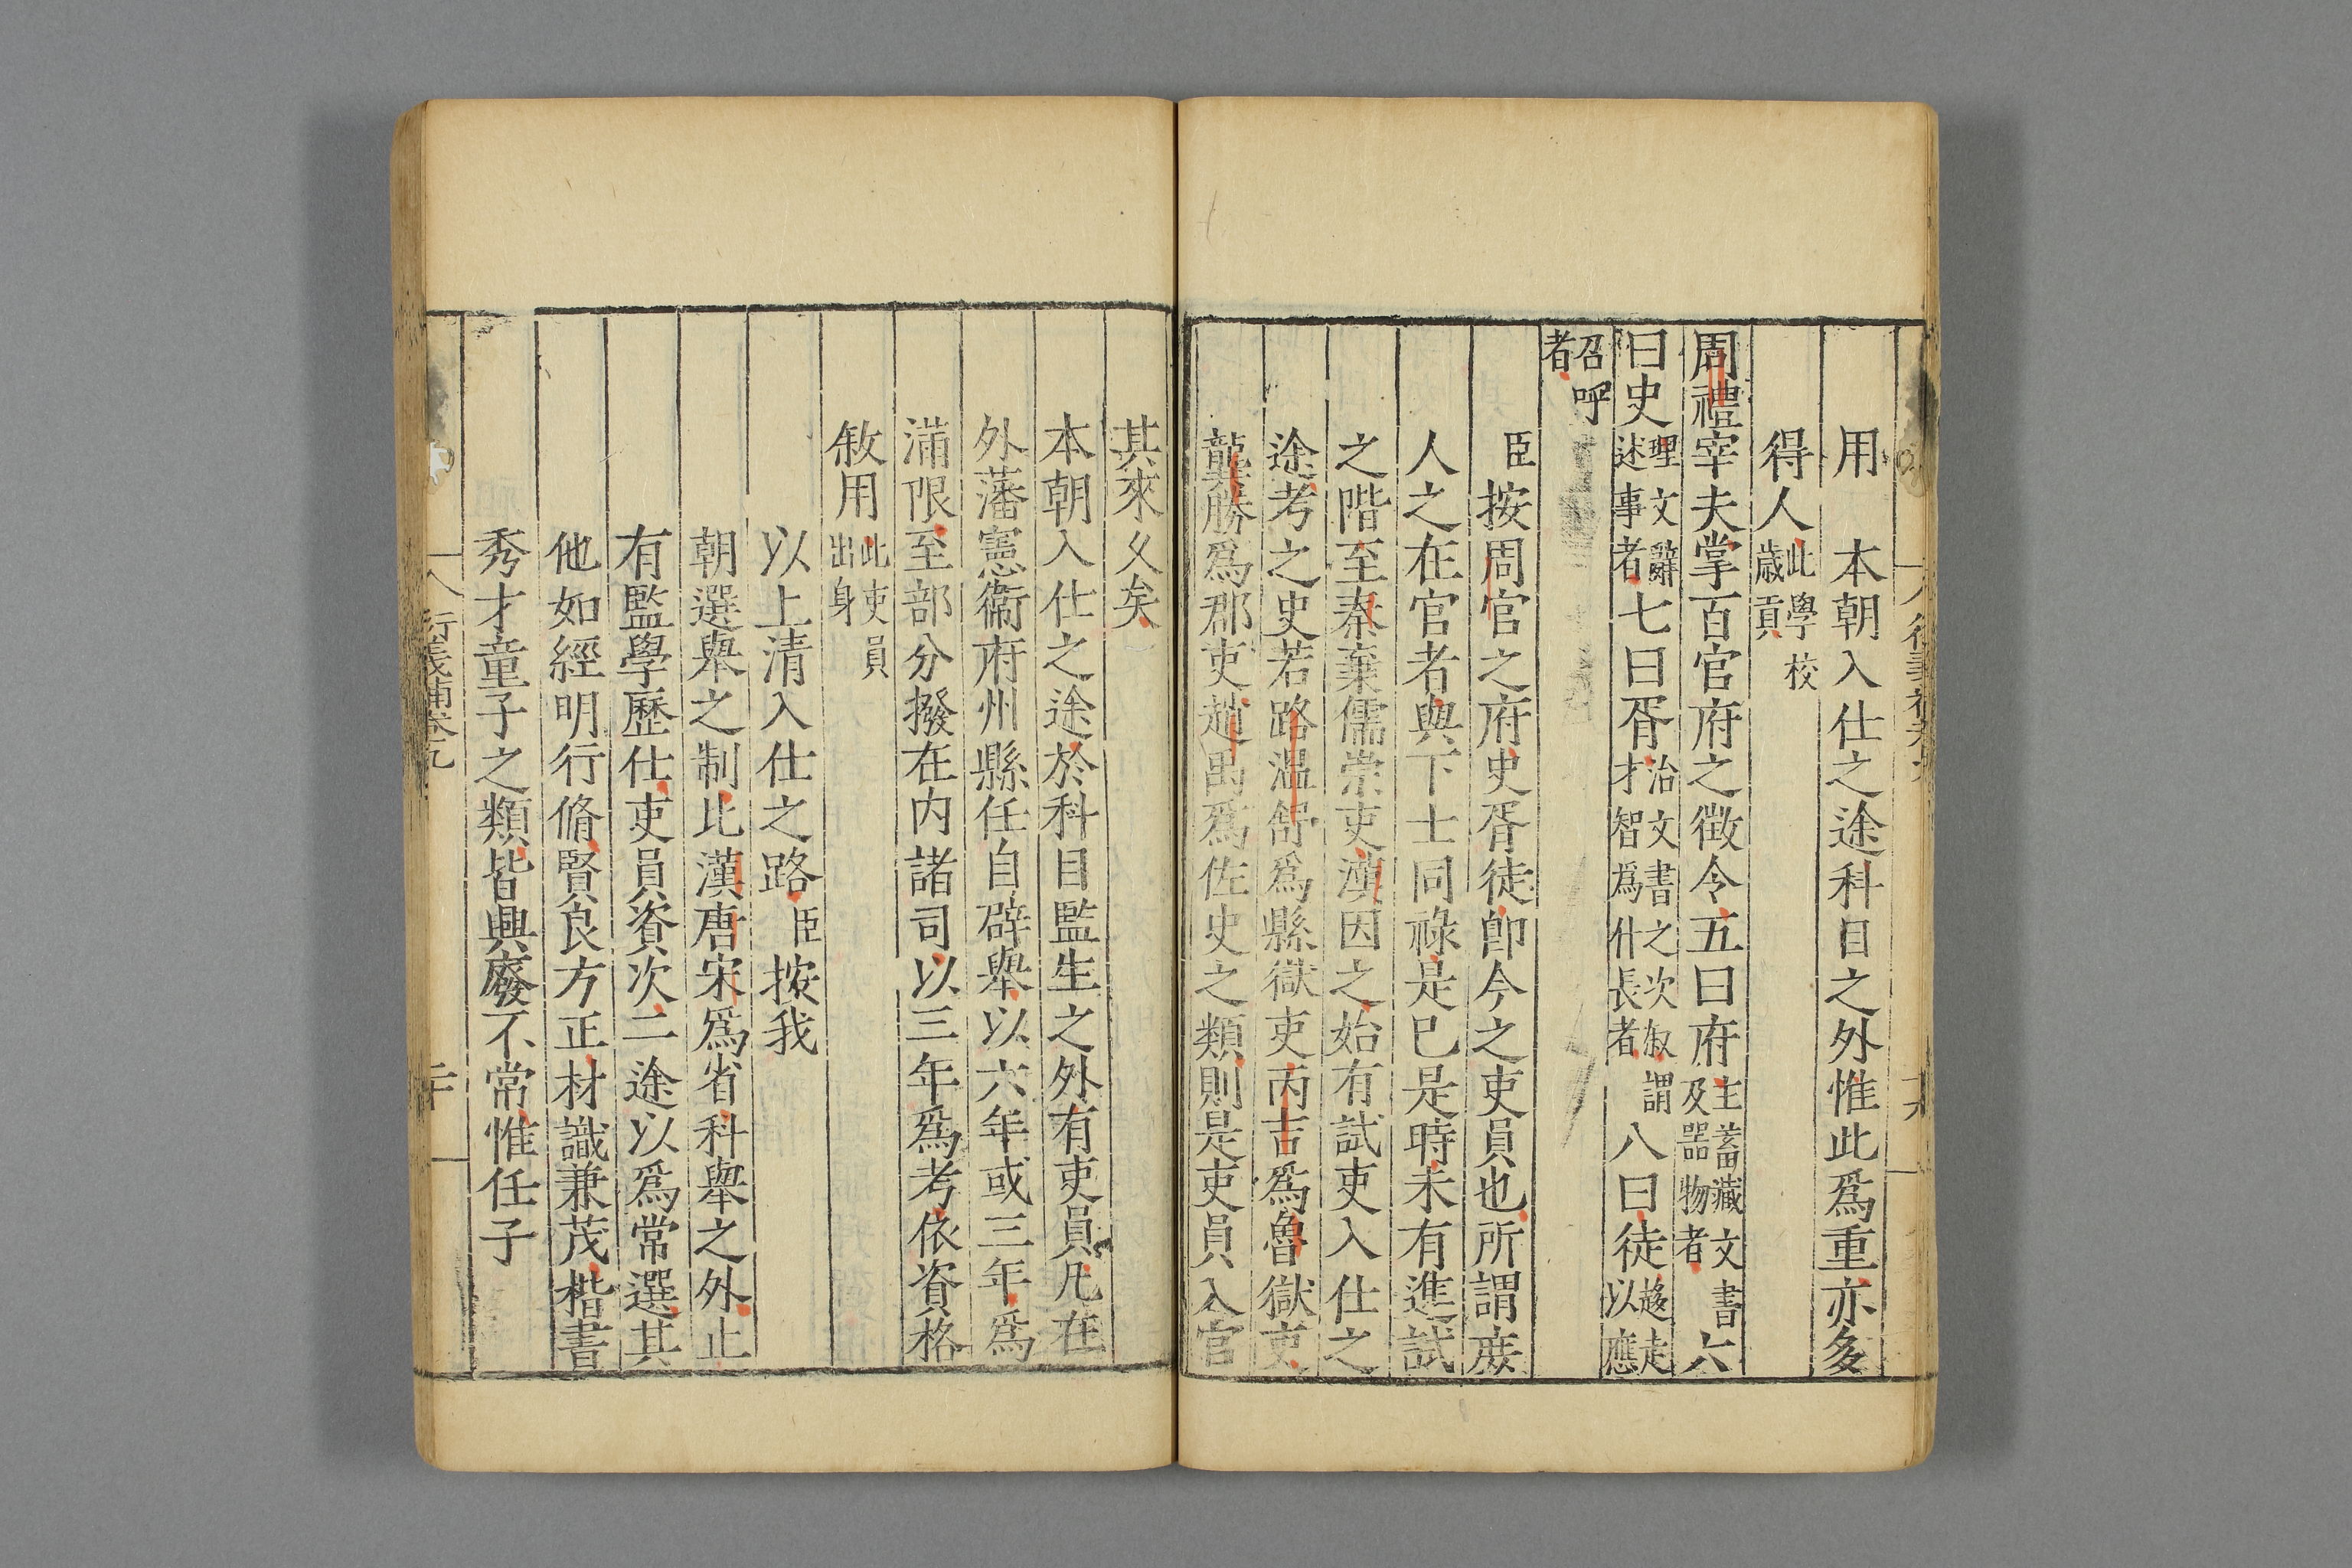 用　本朝入仕之途科目之外惟此爲重亦多
得人此學校歲貢
周禮宰夫掌百官府之徵令五曰府主蓄藏文書及器物者六
曰史理文辭述事者七曰胥治文書之次叙謂才智爲什長者八曰徒趍走以應
召呼者
臣按周官之府史胥徒卽今之吏員也所謂庻
人之在官者與下士同祿是已是時未有進試
之階至秦棄儒崇吏漢因之始有試吏入仕之
途考之史若路溫舒爲縣獄吏丙吉爲魯獄吏
龔勝爲郡吏趙禹爲佐史之類則是吏員入官
其來乆矣
本朝入仕之途於科目監生之外有吏員凡在
外藩憲衞府州縣任自辟舉以六年或三年爲
滿限至部分撥在内諸司以三年爲考依資格
敘用此吏員出身
以上清入仕之路臣按我
朝選舉之制比漢唐宋爲省科舉之外止
有監學歷仕吏員資次二途以爲常選其
他如經明行脩賢良方正材識兼茂楷書
秀才童子之類皆興廢不常惟任子
衍義補卷九
二十